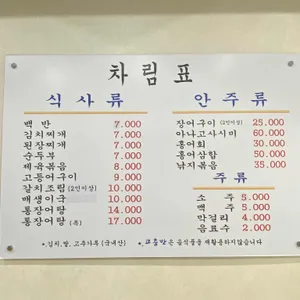 차림표
식사류
백반 7.000
김치찌개 7.000
된장찌개 7.000
순두부 7.000
제육볶음 8.000
고등어구이 9.000
갈치조림 (2인이상) 10.000
매생이국 10.000
통장어탕 14.000
통장어탕 (특) 17.000
안주류
장어구이 (2인이상) 25.000
아나고사시미 60.000
홍어회 30.000
홍어삼합 50.000
낙지볶음 35.000
주류
소주 5.000
맥주 5.000
막걸리 4.000
음료수 2.000
*. 김치, 쌀, 고추가루 (국내산)
음식물을 재활용하지않습니다